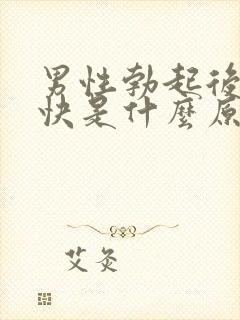 男性勃起後
快是什麼原
艾灸